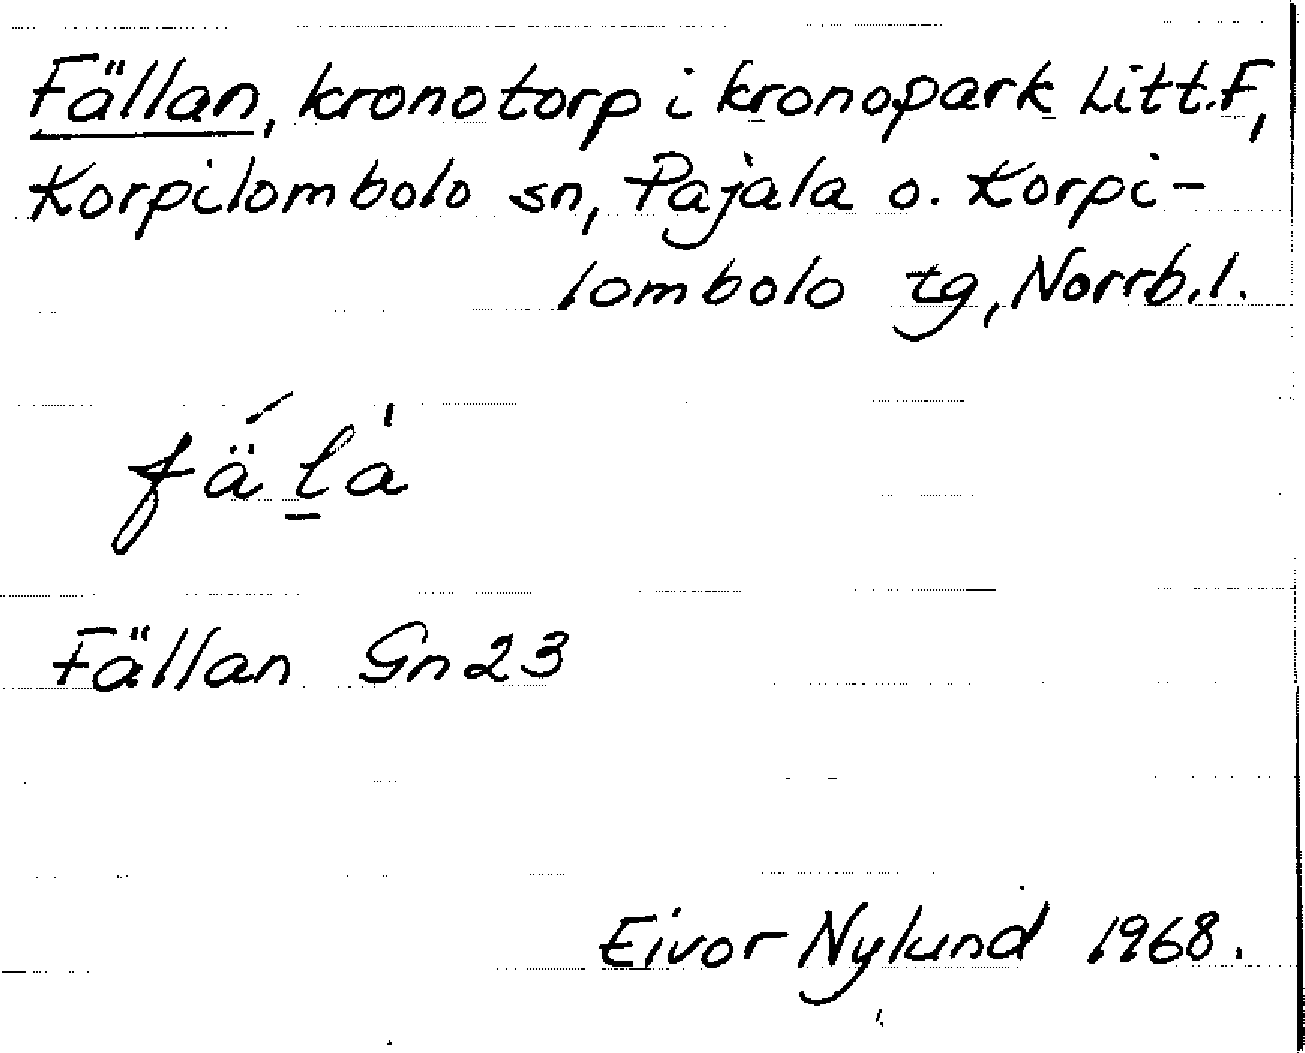 Fällan, kronotorp i kronopark Litt.F,
Korpilombolo sn, Pajala o. Korpi-
lombolo tg, Norrb.l.
fä́l̠a̍
Fällan Gn23
Eivor Nylund 1968.